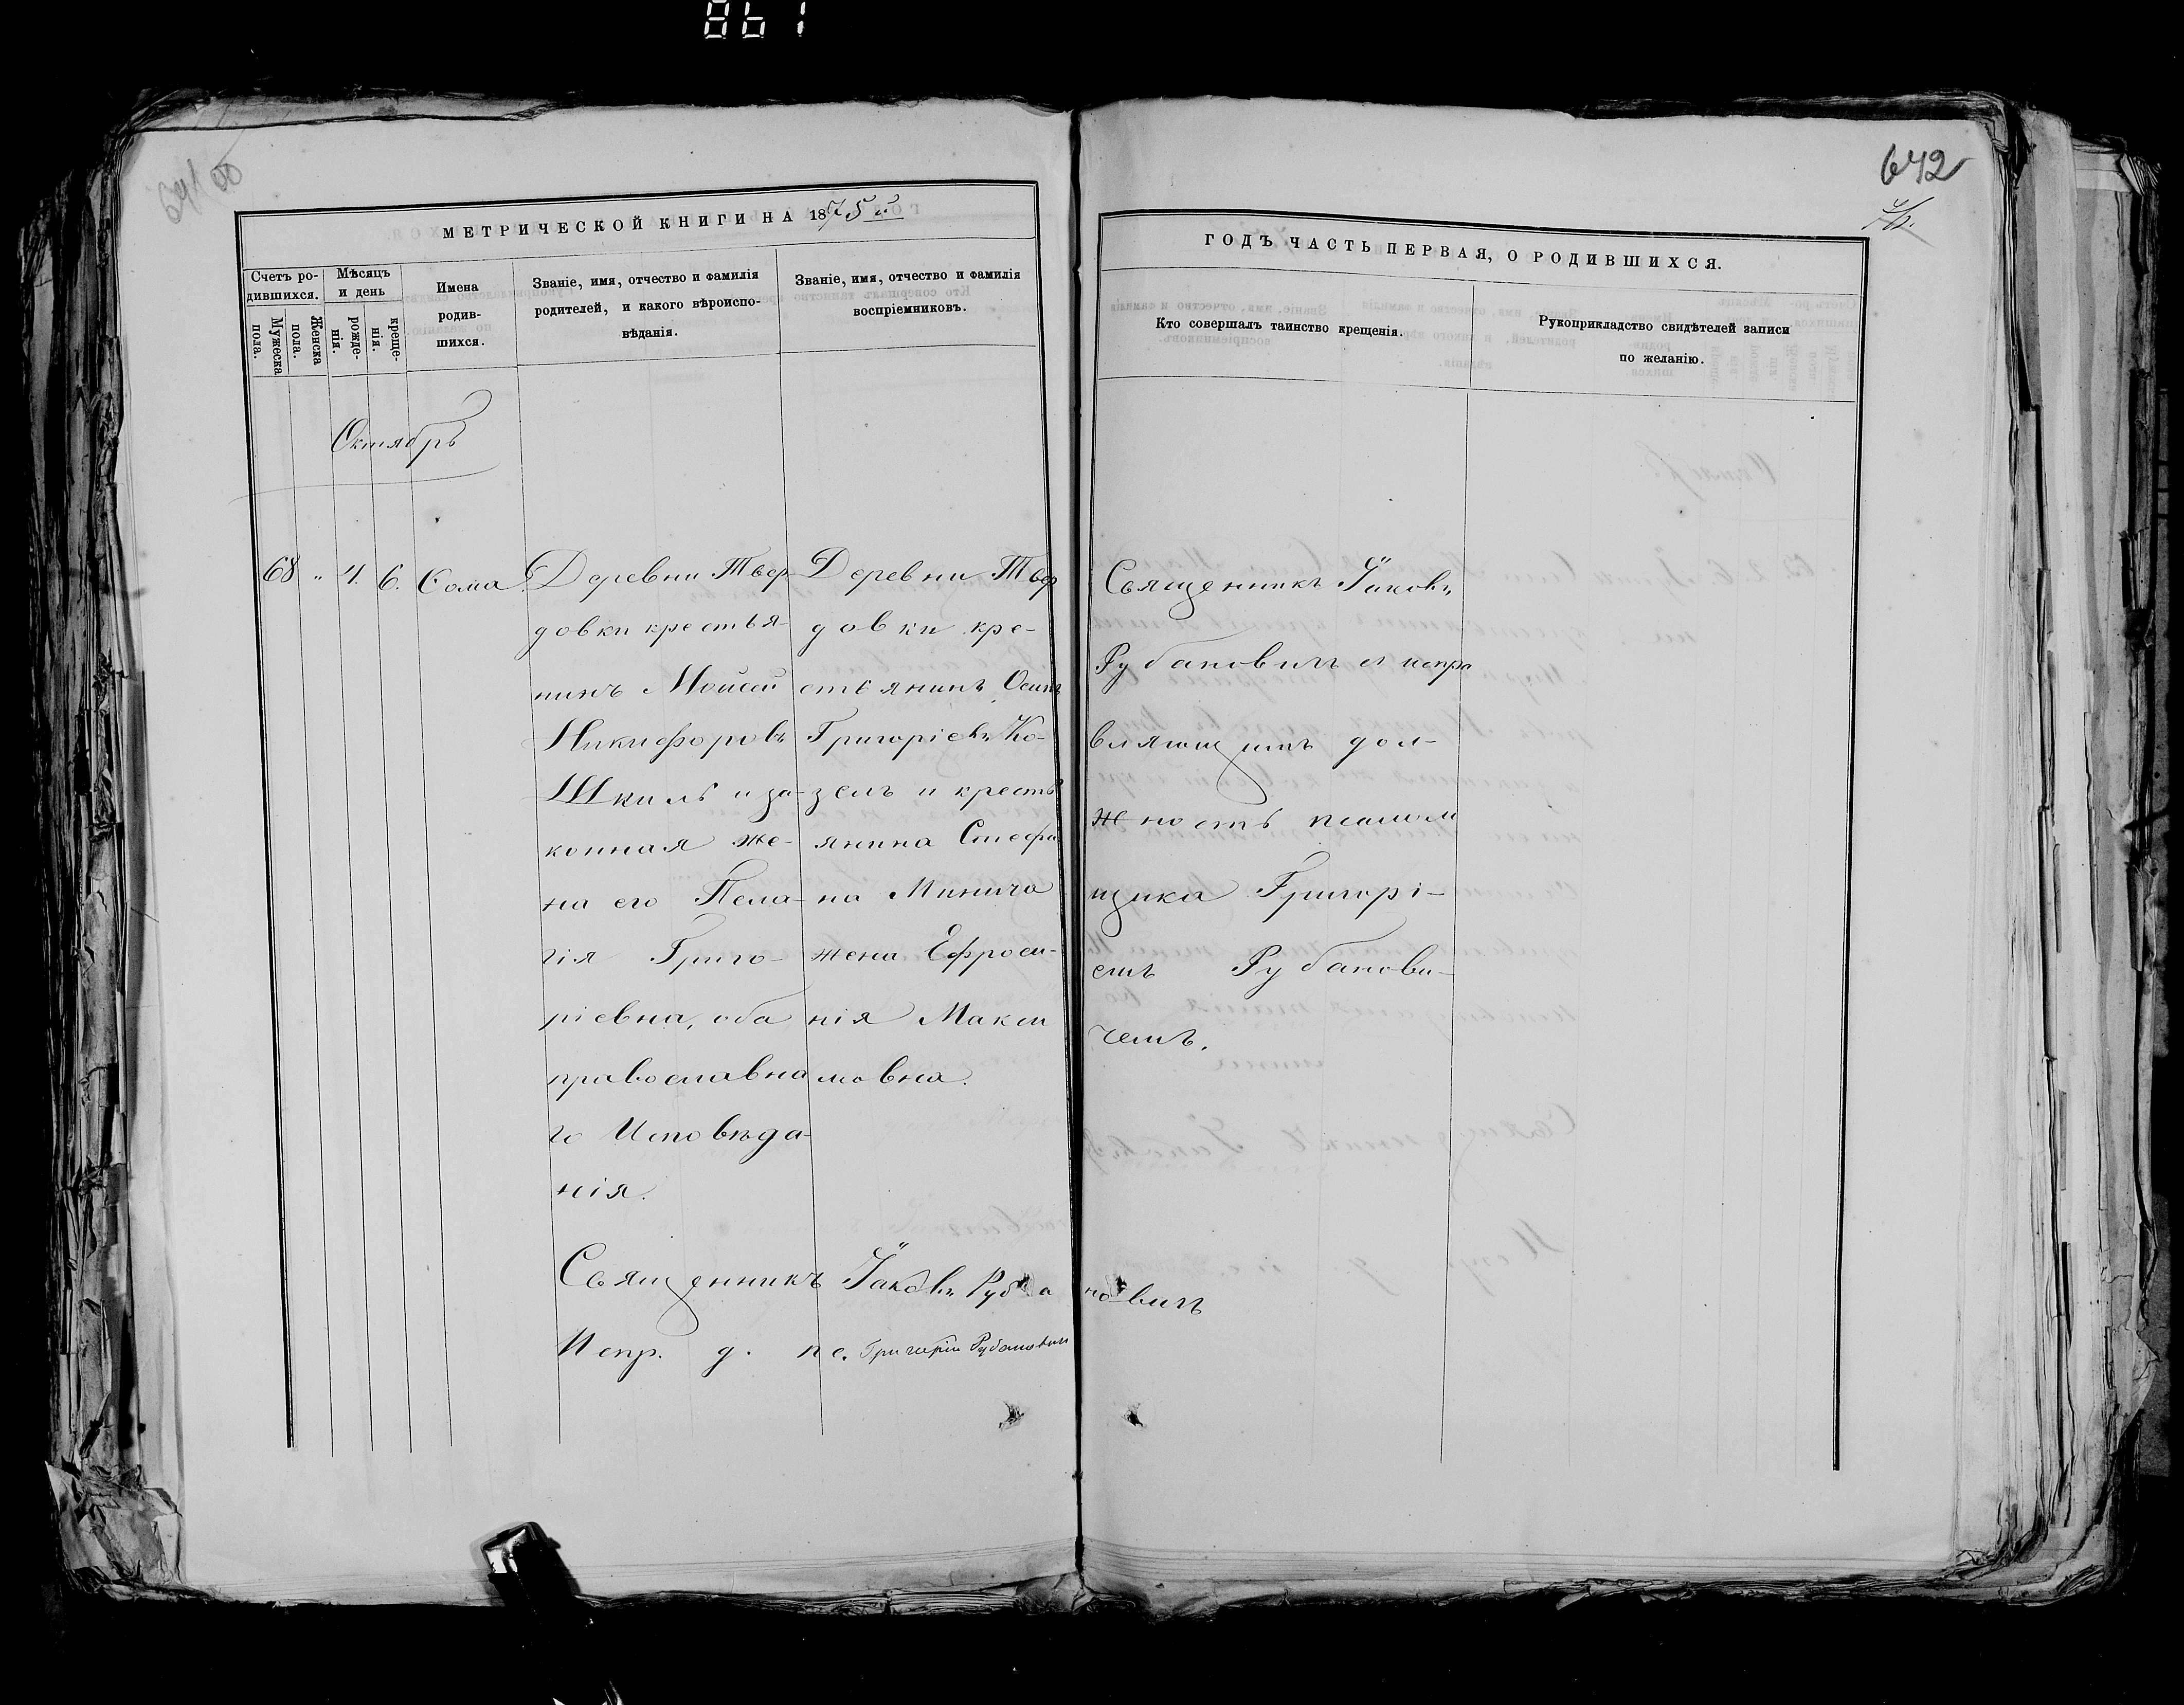 861
642
МЕТРИЧЕСКОЙ КНИГИ НА 1875й
ГОДЪ ЧАСТЬ ПЕРВАЯ, О РОДИВШИХСЯ.
Счетъ ро-
дившихся.
Мужеска
пола.
Женска
пола.
Мѣсяцъ
и день
рожде-
нія.
креще-
нія.
Имена
родив-
шихся.
Званіе, имя, отчество и фамилія
родителей, и какого вѣроиспо-
вѣданія.
Званіе, имя, отчество и фамилія
воспріемниковъ.
Кто совершалъ таинство крещенія.
Рукоприкладство свидѣтелей записи
по желанію.
Октябрь
68 " 4. 6. Ѳома.
Деревни Твер
довки крестья-
нинъ Мойсей
Никифоровъ
Шкиль и за-
конная же-
на его Пела-
гія Григо-
ріевна, оба
православна
го Исповѣда-
нія.
Деревни Твер
довки кре-
стьянинъ Осипъ
Григоріевъ Ко-
зелъ и кресть
янина Стефа
на Минича
жена Ефроси-
нія Макси
мовна.
Священникъ Іаковъ
Рубановичъ съ испра
вляющимъ дол-
жность псалом
щика Григорі-
емъ Рубанови-
чемъ.
Священникъ Іаковъ Рубановичъ
Испр. д. пс. Григорій Рубановичъ